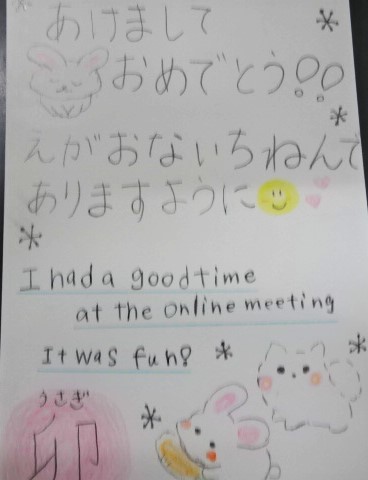 あけまして
おめでとう!!
えがおないちねんで
ありますように
I had a good time
at the online meeting
It was fun!
うさぎ
卯